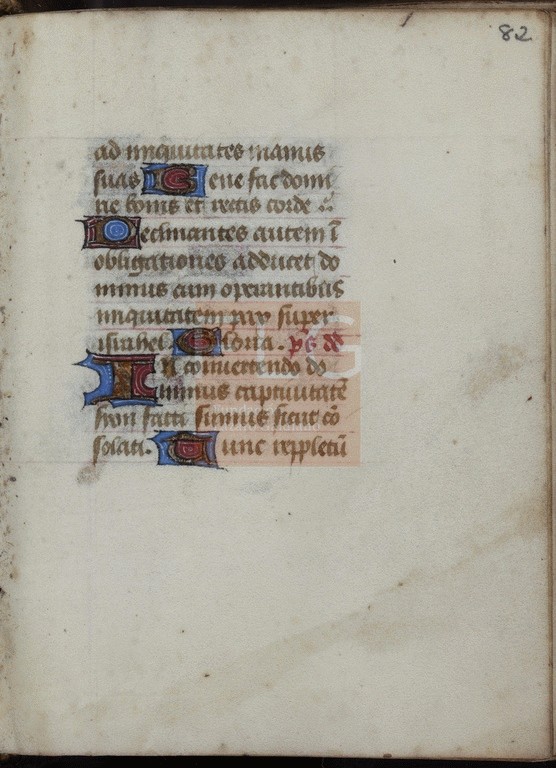 82
ad iniquitates manus
suas Bene fac domi
ne bonis et rectis corde
Declinantes autem ī
obligationes adducet do
minus cum operantibus
iniquitatem pax super
israhel. Gloria. ps dd
In convertendo do
minus captivitatē
syon facti sumus sicut cō
solati. Tunc repletū